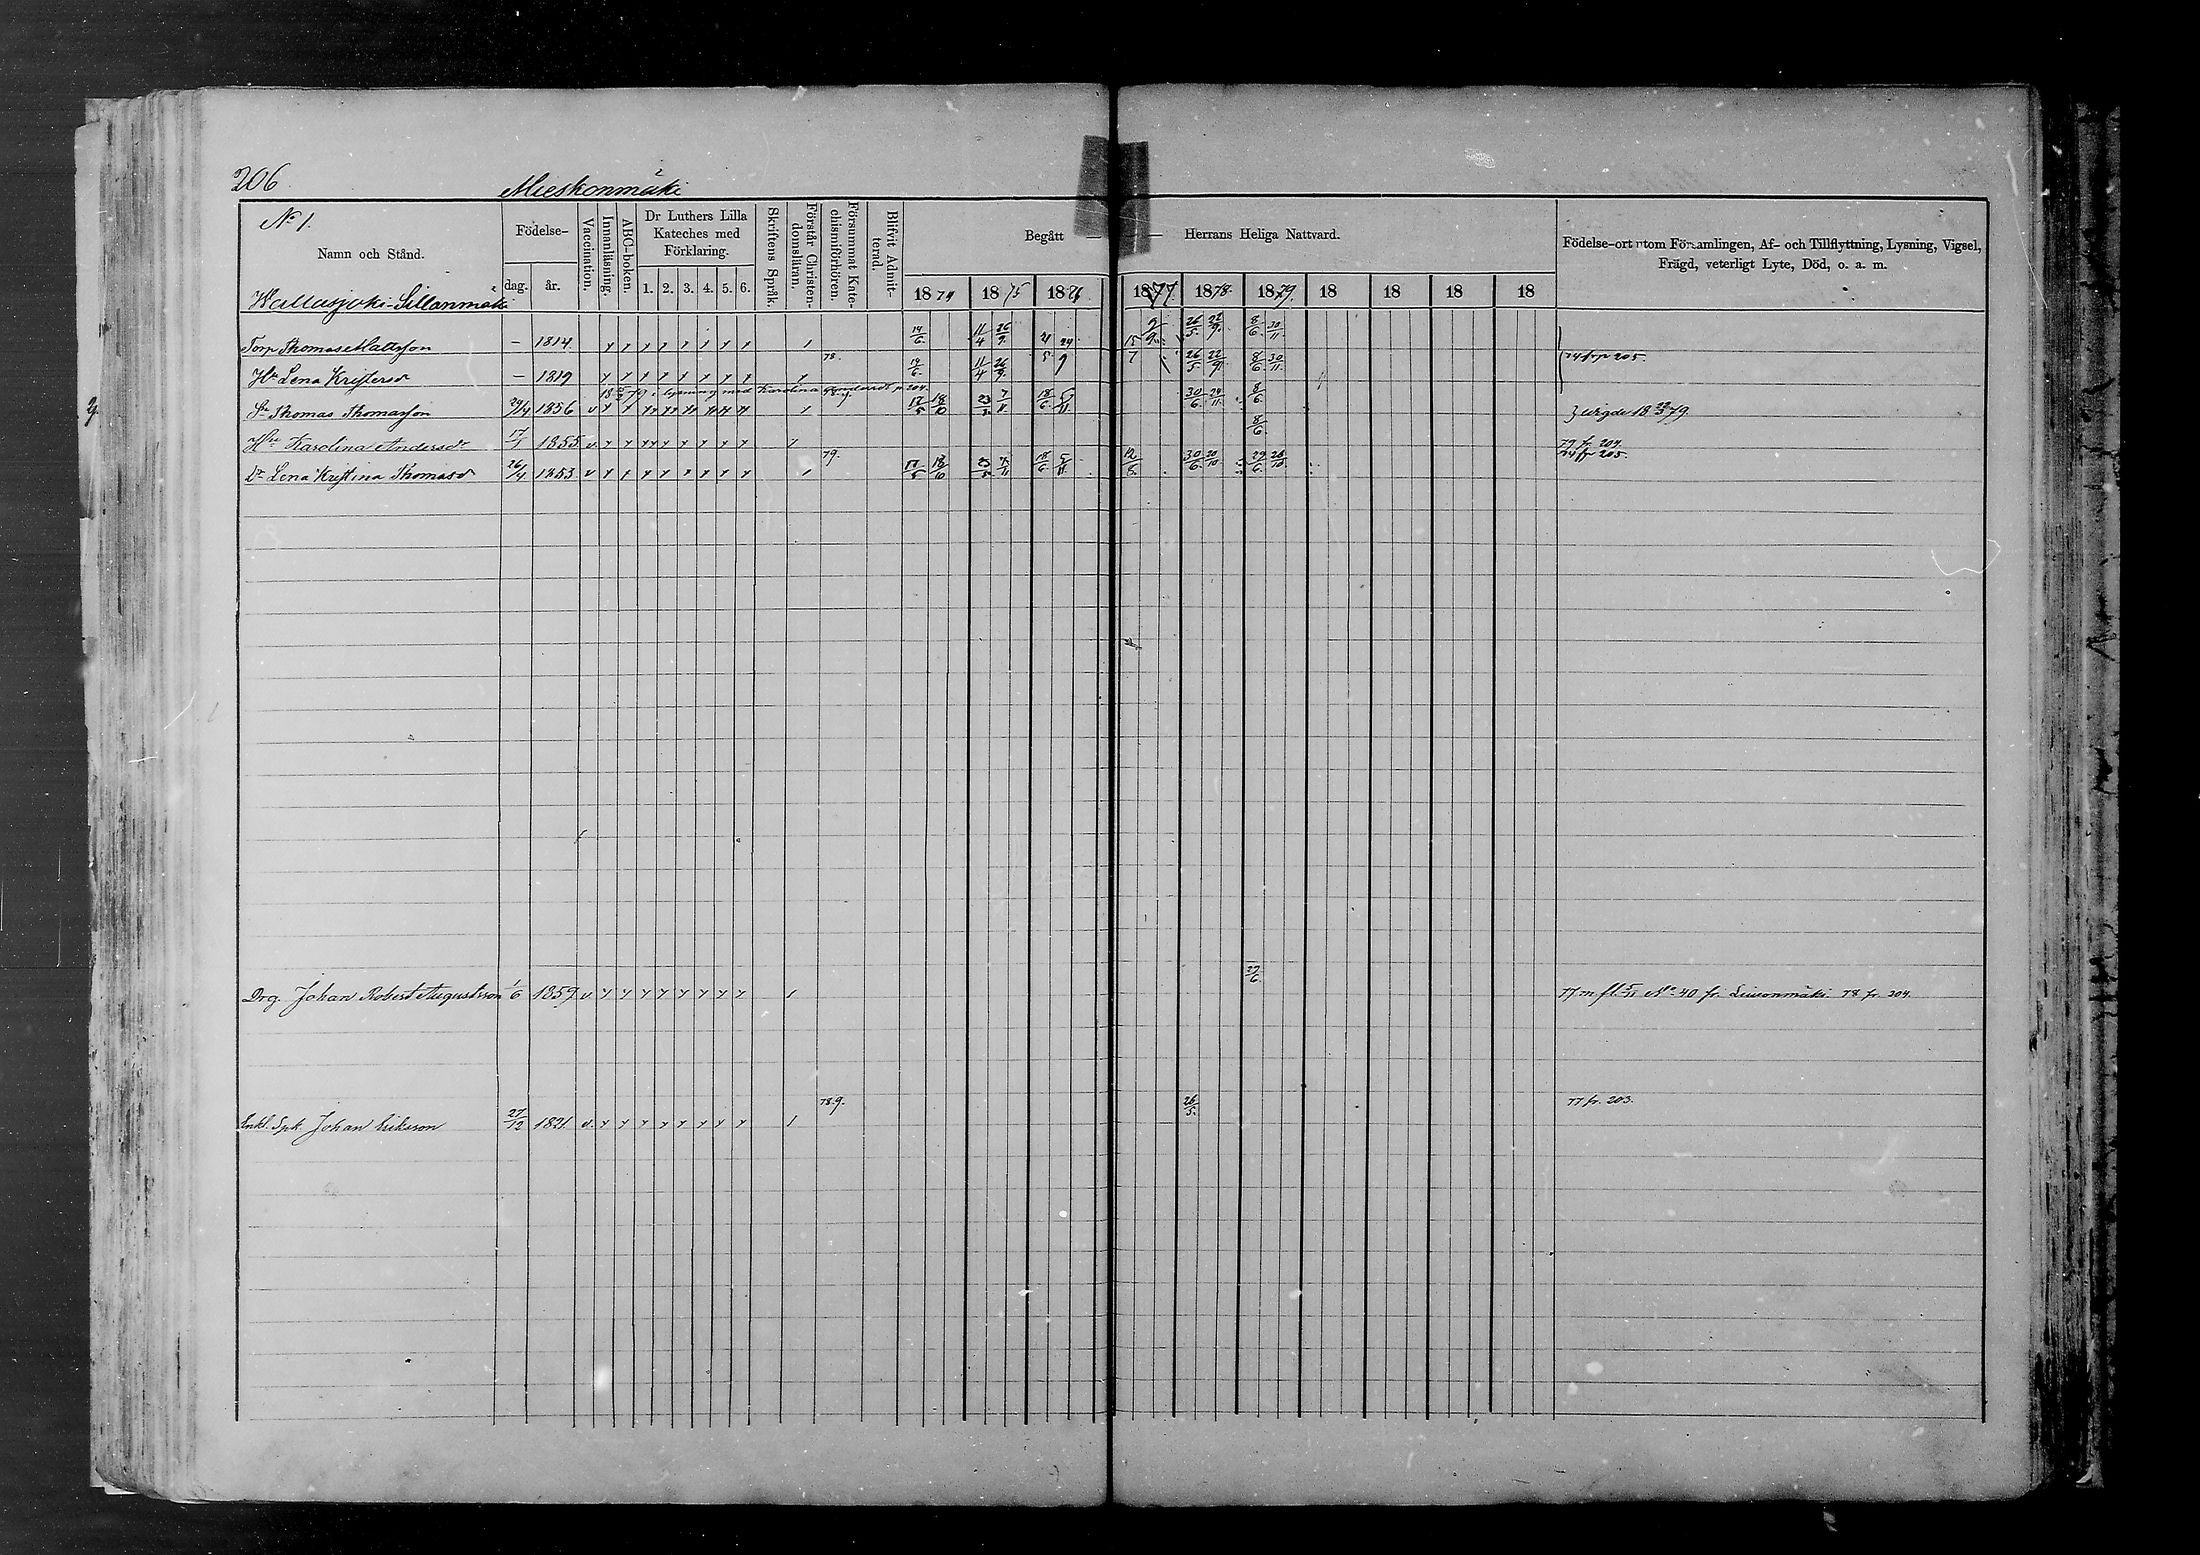 206
Mieskonmäki
No 1.
Namn och Stånd.
Födelse-
dag. år.
Vaccination.
Innanläsning.
ABC-boken.
Dr Luthers Lilla
Kateches med
Förklaring.
1. 2. 3. 4. 5. 6.
Skriftens Språk.
Förstår Christen-
domsläran.
Försummat Kate-
chismiförhören.
Blifvit Admit-
terad.
Begått — — Herrans Heliga Nattvard.
1874 1875 1876 1877 1878 1879 18 18 18 18
Födelse-ort utom Församlingen, Af- och Tillflyttning, Lysning, Vigsel,
Frägd, veterligt Lyte, Död, o. a. m.
Hallasjoki-Sillanmäki
Torp Thomas Mattsson — 1814 14/6 11/4 26/9 9/9 26/5 22/9 8/6 30/11
Hu Lena Kristersdr — 1819 78. 14/6 11/4 26/9 26/5 22/9 8/6 30/11 74 fr p 205.
i lysning med Karolina p 204.
Sn Thomas Thomasson 29/4 1856 v 17/5 18/10 23/5 7/11 18/6 5/11 30/6 24/11 8/6 vigde 18 23/3 79.
Hu Karolina Andersdr 17/1 1855 v 8/6 79 fr 204.
Dr Lena Kristina Thomasdr 26/4 1853 v 79. 17/5 18/10 23/5 7/11 18/6 5/11 12/8 30/6 20/10 29/6 26/10 74 fr 205.
Drg. Johan Robert Augustsson 1/6 1859 v 27/6 77 m fl. 5/11 No 40 fr. Liusonmäki 78 fr. 204.
Enkl. Spk. Johan Eriksson 27/12 1821 v. 78.9. 26/5. 77 fr. 203.